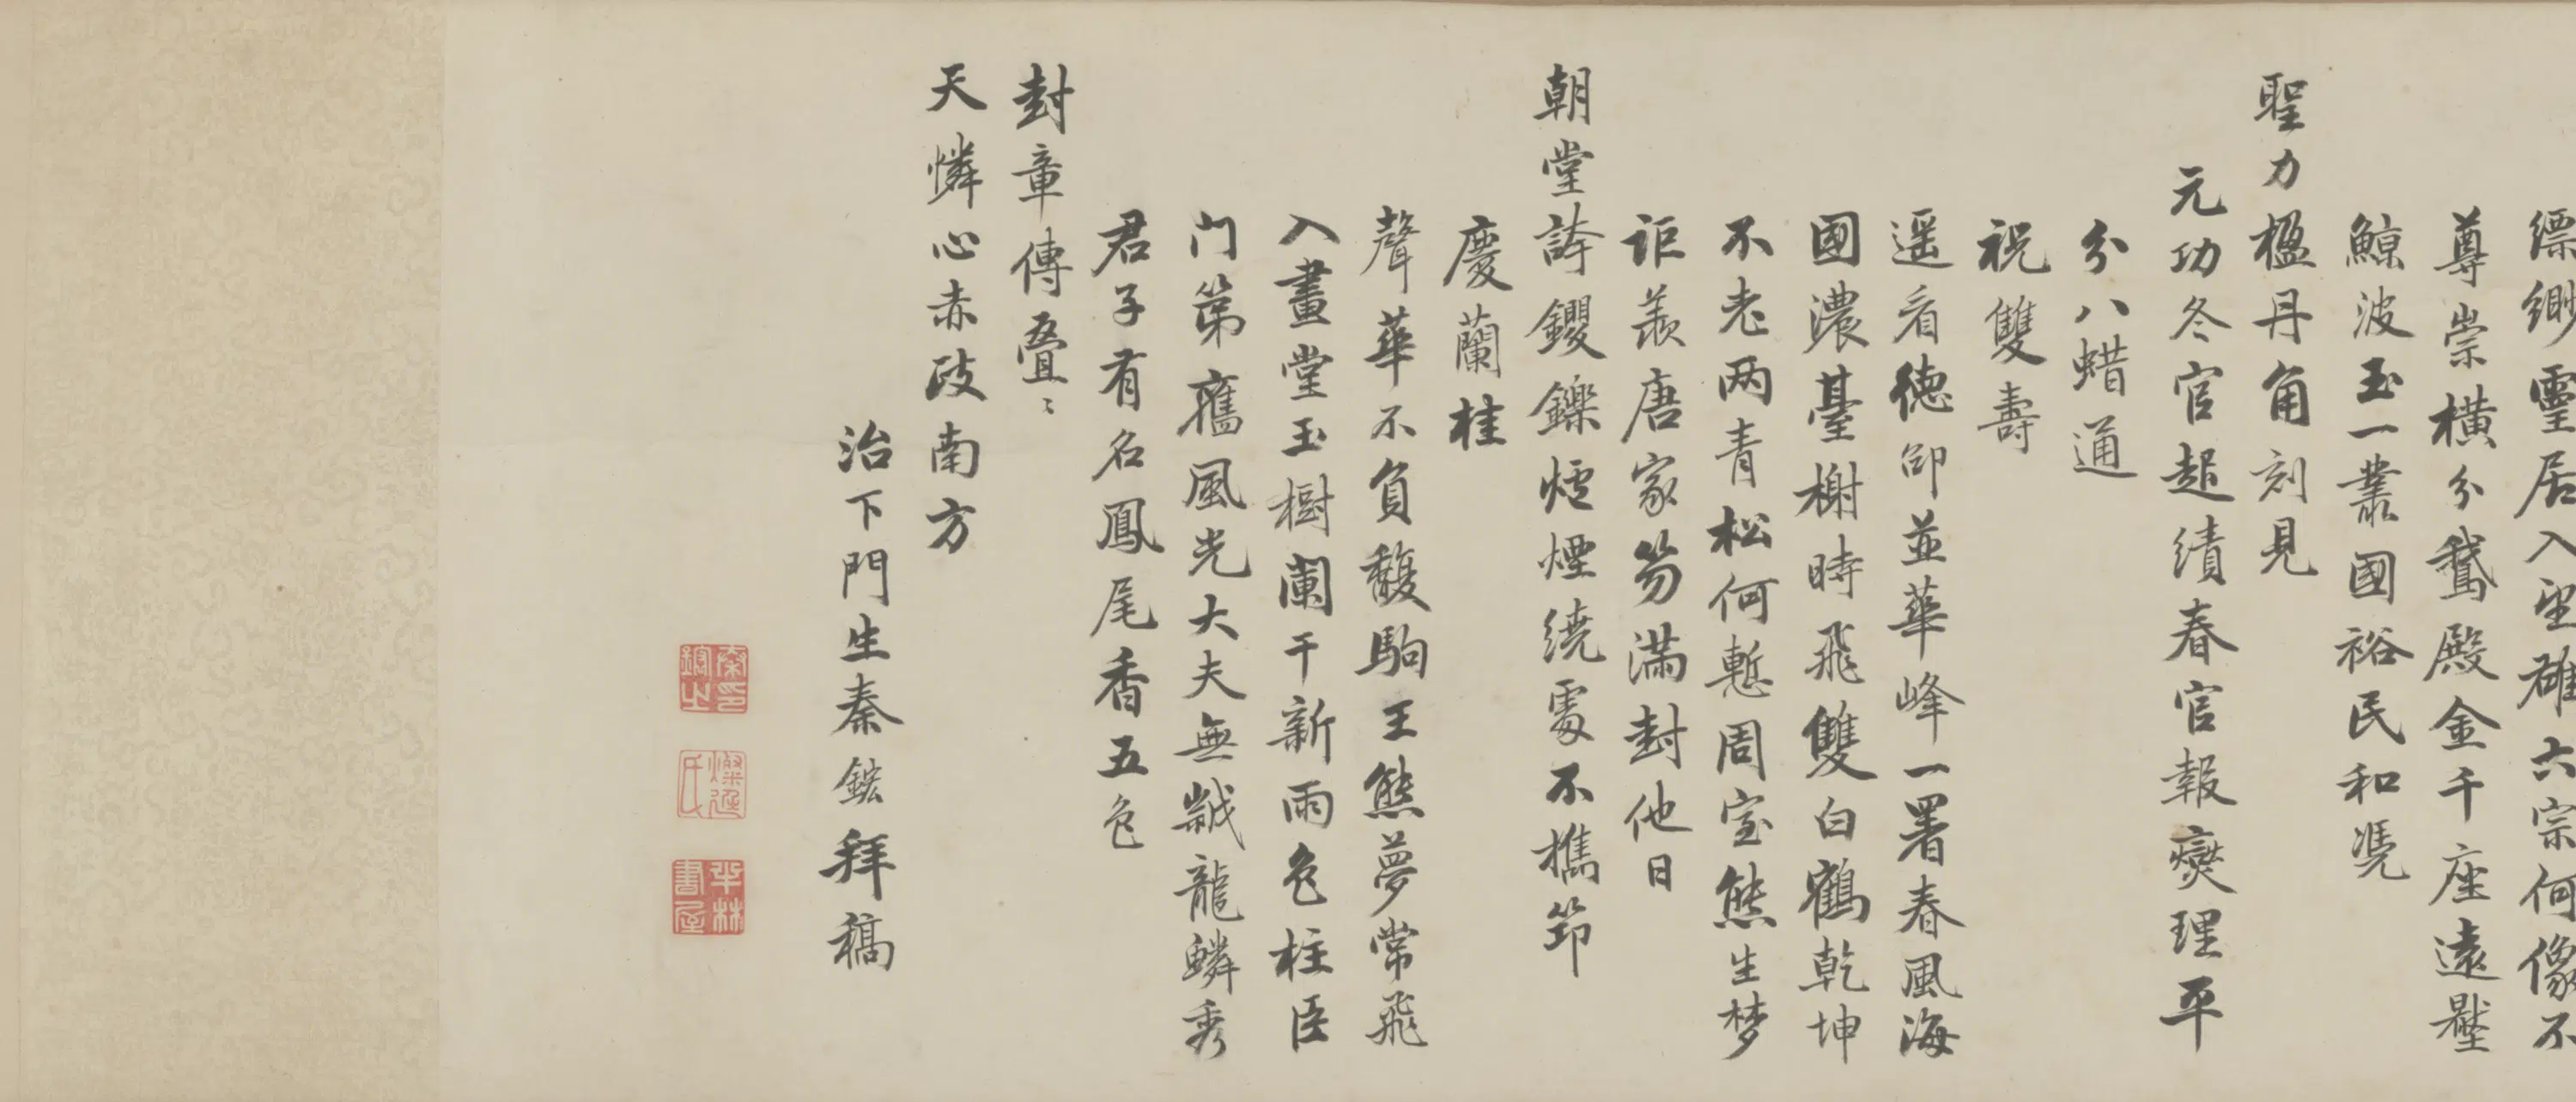 縹緲靈居入望雄六宗何像不
尊崇橫分鵝殿金千座遠壓
鯨波玉一叢國裕民和憑
聖力楹丹角刻見
元功冬官起績春官報燮理平
分八蜡通
祝雙壽
遥看德卲並華峰一署春風海
國濃臺榭時飛雙白鶴乾坤
不老两青松何慙周室熊生梦
詎羨唐家笏滿封他日
朝堂誇钁鑠爐煙繞處不携笻
慶蘭桂
聲華不負馥駒王熊夢常飛
入畫堂玉樹闌干新雨色柱臣
门第舊風光大夫無龍鱗秀
君子有名鳳尾香五色
封章傳疊〻
天憐心赤改南方
治下門生秦鋐拜稿
秦印鋐之
燦廷氏
半林書屋